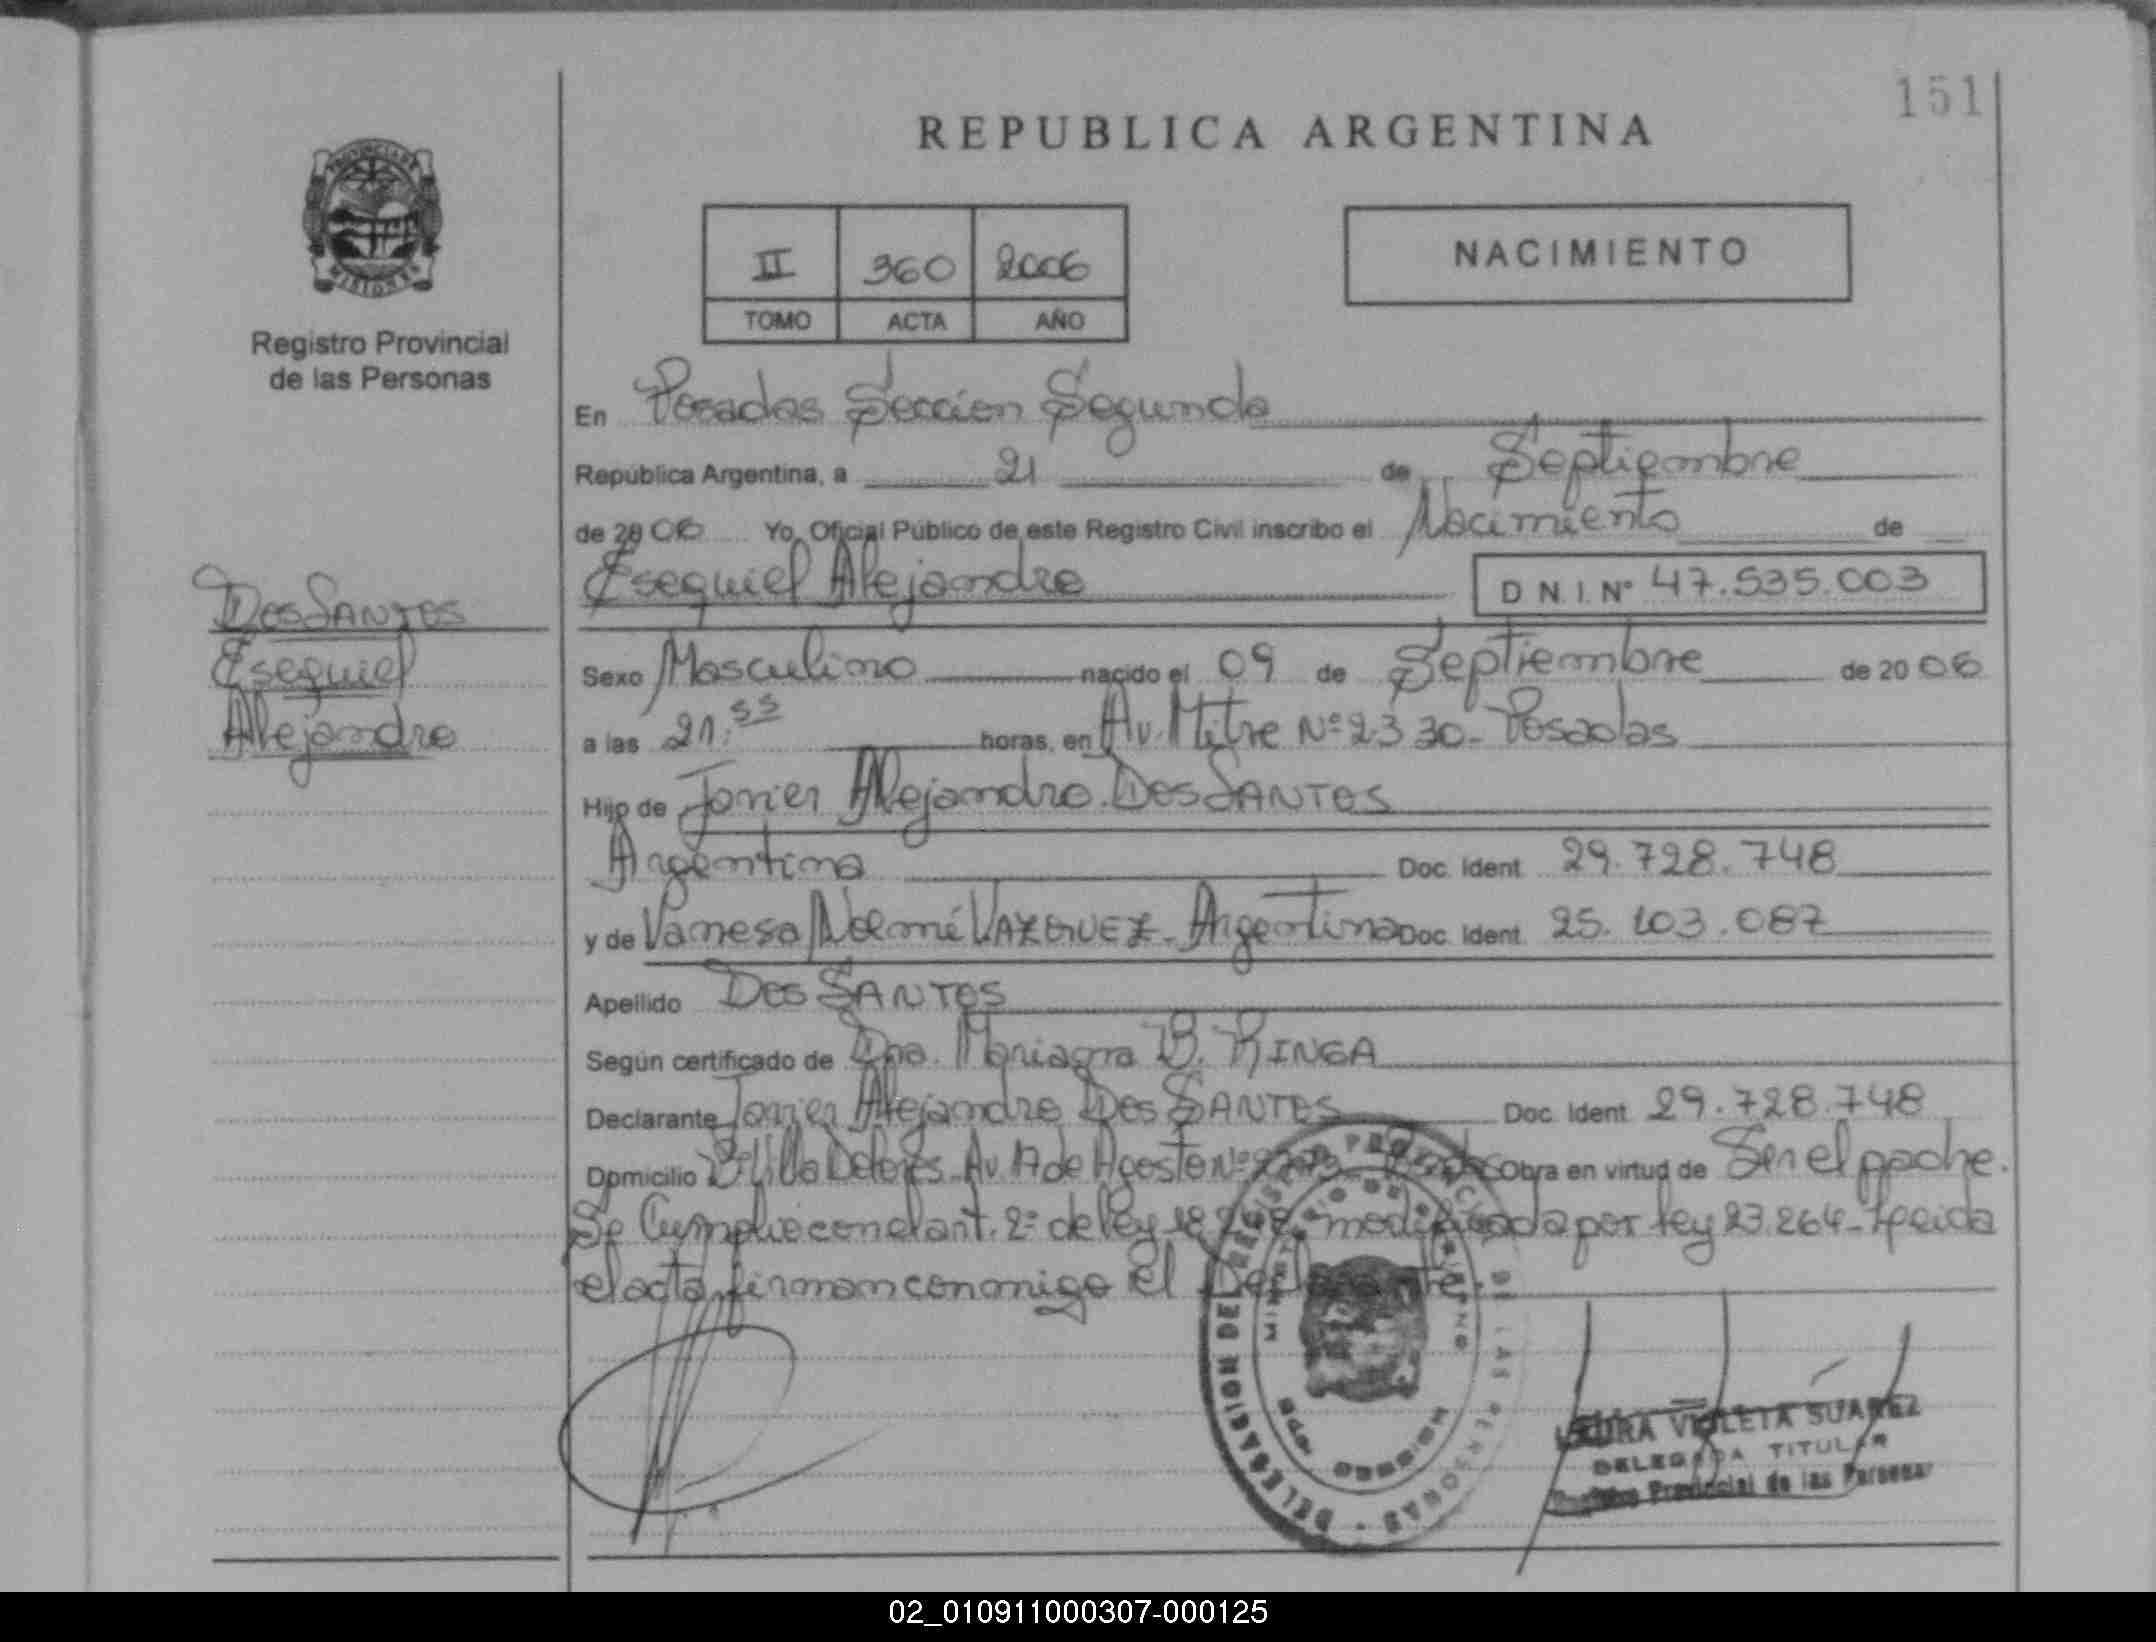 151
REPUBLICA ARGENTINA
PROVINCIA DE
MISIONES
II 360 2006
TOMO ACTA AÑO
NACIMIENTO
Registro Provincial
de las Personas
En Posadas Sección Segunda
República Argentina, a 21 de Septiembre
de 2006 Yo, Oficial Público de este Registro Civil inscribo el Nacimiento de
Esequiel Alejandro
D N. I. Nº 47.535.003
Dos SANTOS
Esequiel
Alejandro
Sexo Masculino nacido el 09 de Septiembre de 2006
a las 21:55 horas, en Av. Mitre Nº 2330 - Posadas
Hijo de Javier Alejandro Dos SANTOS
Argentina Doc. Ident. 29.728.748
y de Vanesa Noemí VAZQUEZ - Argentina Doc. Ident. 25.103.087
Apellido Dos SANTOS
Según certificado de Dra. Mariana B. RINGA
Declarante Javier Alejandro Dos SANTOS Doc. Ident. 29.728.748
Domicilio Bº Villa Dolores - Av. 17 de Agosto Nº Posadas Obra en virtud de Ser el padre.
Se Cumplio con el art. 2º de ley 18.248 modificada por ley 23.264 - Leida
el acta, firman conmigo El Declarante.
DELEGACION DEL REGISTRO PROVINCIAL DE LAS PERSONAS
MINISTERIO DE GOBIERNO
MISIONES
LAURA VIOLETA SUAREZ
DELEGADA TITULAR
Registro Provincial de las Personas
02_010911000307-000125